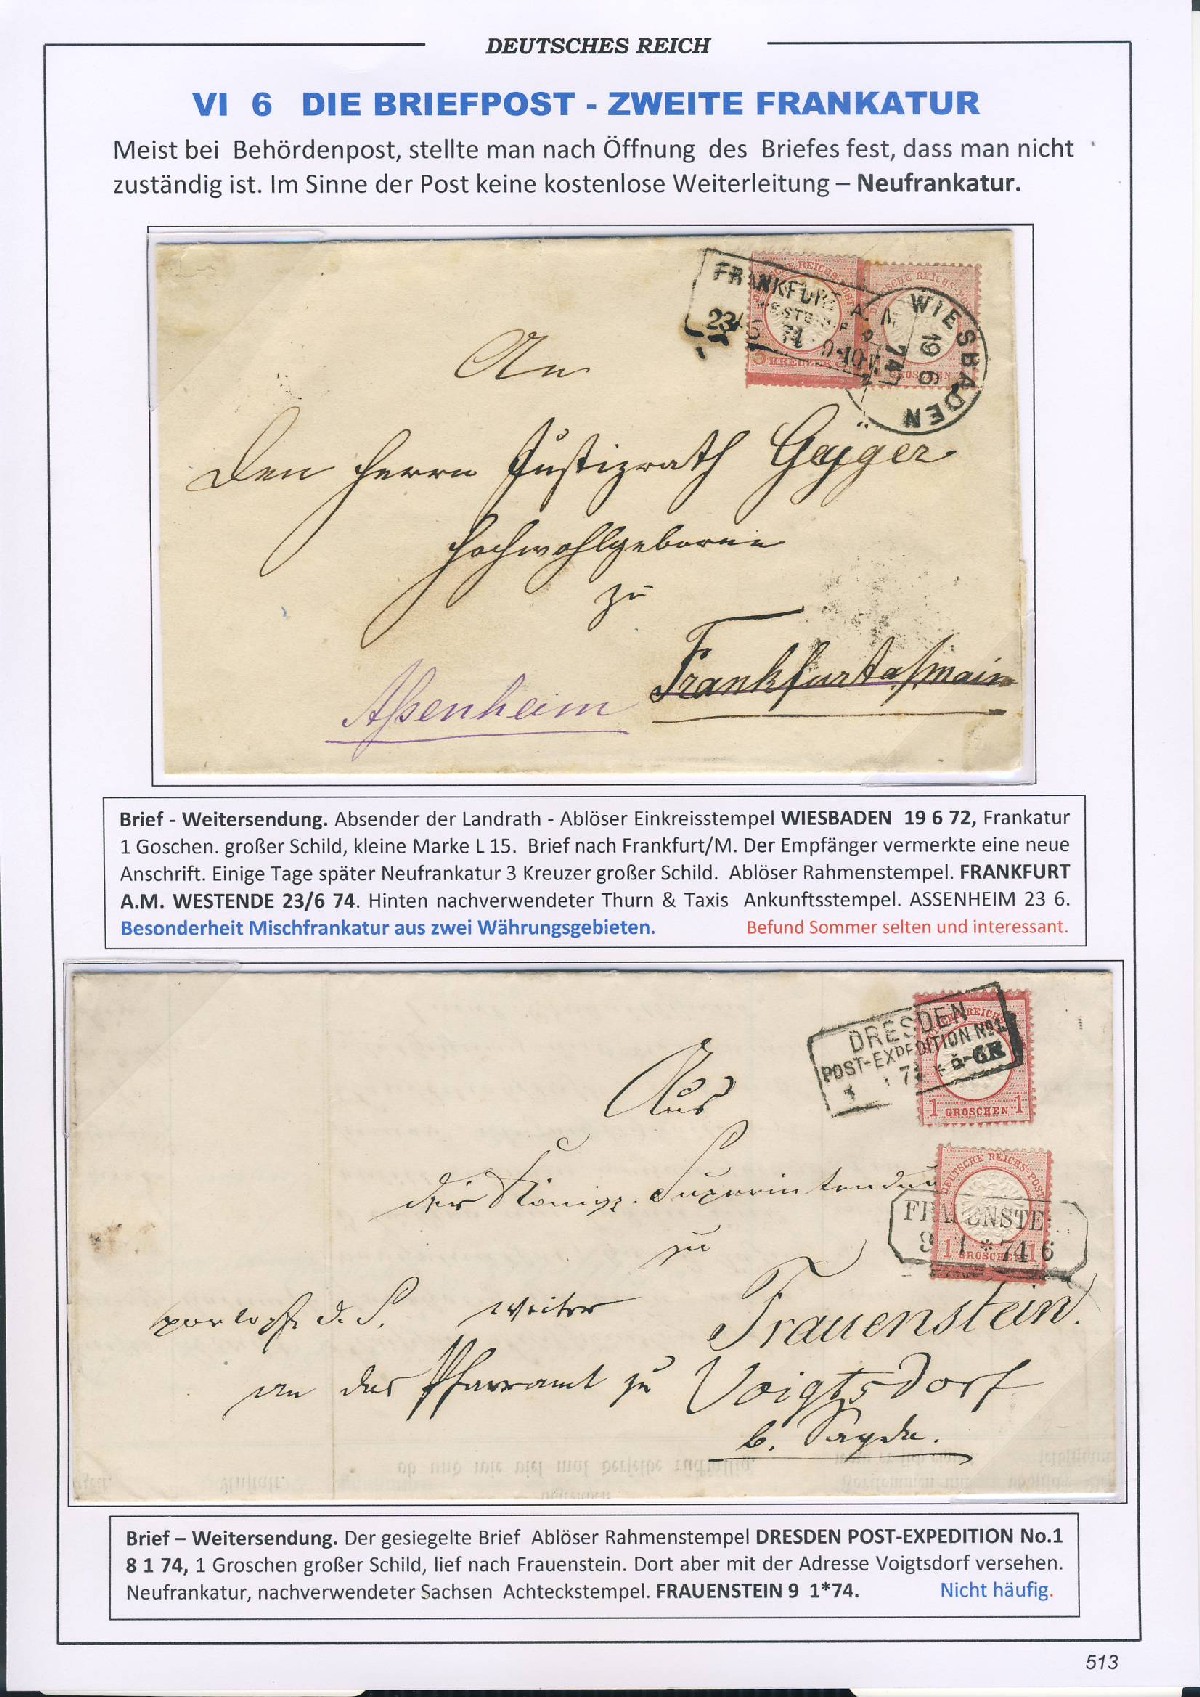 DEUTSCHES REICH
VI 6 DIE BRIEFPOST - ZWEITE FRANKATUR
Meist bei Behördenpost, stellte man nach Öffnung des Briefes fest, dass man nicht
zuständig ist. Im Sinne der Post keine kostenlose Weiterleitung – Neufrankatur.
FRANKFURT A. M.
23 6 74
WIESBADEN
19 6
74
An
Den Herrn Justizrath Geyger
Hochwohlgeboren
zu
Frankfurt a/main
Aßenheim
Brief - Weitersendung. Absender der Landrath - Ablöser Einkreisstempel WIESBADEN 19 6 72, Frankatur
1 Goschen. großer Schild, kleine Marke L 15. Brief nach Frankfurt/M. Der Empfänger vermerkte eine neue
Anschrift. Einige Tage später Neufrankatur 3 Kreuzer großer Schild. Ablöser Rahmenstempel. FRANKFURT
A.M. WESTENDE 23/6 74. Hinten nachverwendeter Thurn & Taxis Ankunftsstempel. ASSENHEIM 23 6.
Besonderheit Mischfrankatur aus zwei Währungsgebieten. Befund Sommer selten und interessant.
DRESDEN
POST-EXPEDITION No.1
1 GROSCHEN 1
DEUTSCHE REICHS-POST
FRAUENSTE
9 1 * 74 6
1 GROSCHEN 1
Aus
der Königl. Superintendur
zu
Frauenstein.
weiter
an das Pfarramt zu Voigtsdorf
b. Sayda.
Brief – Weitersendung. Der gesiegelte Brief Ablöser Rahmenstempel DRESDEN POST-EXPEDITION No.1
8 1 74, 1 Groschen großer Schild, lief nach Frauenstein. Dort aber mit der Adresse Voigtsdorf versehen.
Neufrankatur, nachverwendeter Sachsen Achteckstempel. FRAUENSTEIN 9 1*74. Nicht häufig.
513